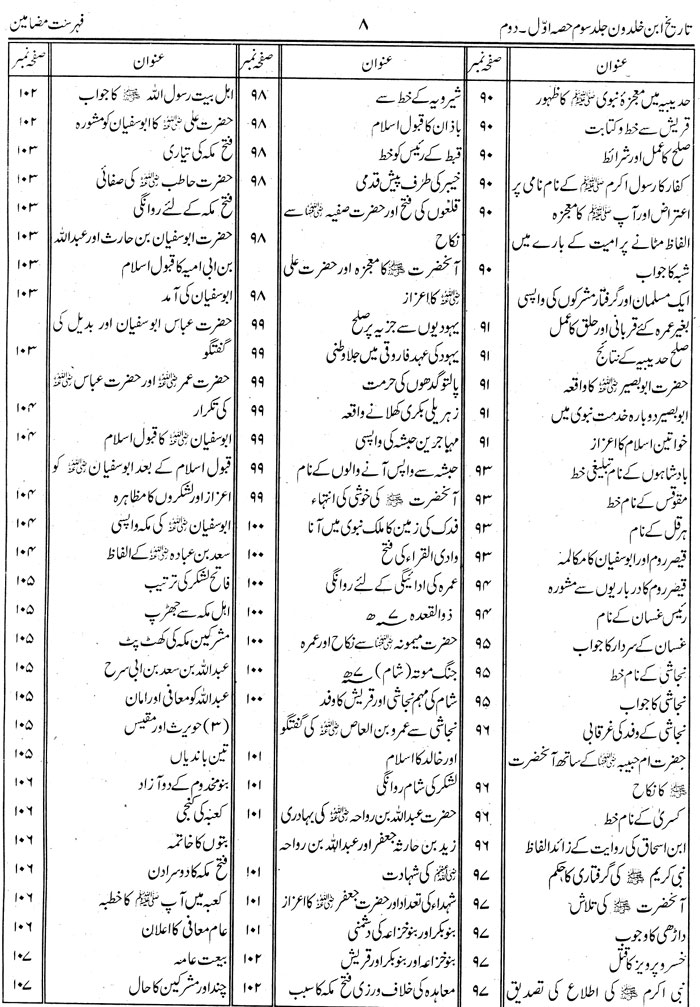 تاریخ ابن خلدون جلد سوم حصہ اوّل ۔ دوم
۸
فہرست مضامین
عنوان
صفحہ نمبر
حدیبیہ میں معجزۂ نبوی ﷺ کا ظہور
۹۰
قریش سے خط و کتابت
۹۰
صلح کا عمل اور شرائط
۹۰
کفار کا رسول اکرم ﷺ کے نام نامی پر
۹۰
اعتراض اور آپ ﷺ کا معجزہ
۹۰
الفاظ مٹانے پر امیت کے بارے میں
شبہ کا جواب
۹۰
ایک مسلمان اور گرفتار مشرکوں کی واپسی
بغیر عمرہ کئے قربانی اور حلق کا عمل
۹۱
صلح حدیبیہ کے نتائج
۹۱
حضرت ابوبصیر ؓ کا واقعہ
۹۱
ابوبصیر دوبارہ خدمت نبوی میں
۹۱
خواتین اسلام کا اعزاز
۹۱
بادشاہوں کے نام تبلیغی خط
۹۳
مقوقس کے نام خط
۹۳
ہرقل کے نام
۹۳
قیصر روم اور ابوسفیان کا مکالمہ
۹۳
قیصر روم کا درباریوں سے مشورہ
۹۴
رئیس غسان کے نام
۹۴
غسان کے سردار کا جواب
۹۵
نجاشی کے نام خط
۹۵
نجاشی کا جواب
۹۵
نجاشی کے وفد کی غرقابی
۹۶
حضرت ام حبیبہ ؓ کے ساتھ آنحضرت
ﷺ کا نکاح
۹۶
کسریٰ کے نام خط
۹۶
ابن اسحاق کی روایت کے زائد الفاظ
۹۶
نبی کریم ﷺ کی گرفتاری کا حکم
۹۷
آنحضرت ﷺ کی تلاش
۹۷
داڑھی کا وجوب
۹۷
خسرو پرویز کا قتل
۹۷
نبی اکرم ﷺ کی اطلاع کی تصدیق
۹۷
عنوان
صفحہ نمبر
شیرویہ کے خط سے
۹۸
باذان کا قبول اسلام
۹۸
قبط کے رئیس کو خط
۹۸
خیبر کی طرف پیش قدمی
۹۸
قلعوں کی فتح اور حضرت صفیہ ؓ سے
نکاح
۹۸
آنحضرت ﷺ کا معجزہ اور حضرت علی
ؓ کا اعزاز
۹۸
یہودیوں سے جزیہ پر صلح
۹۹
یہود کی عہد فاروقی میں جلاوطنی
۹۹
پالتو گدھوں کی حرمت
۹۹
زہریلی بکری کھلانے واقعہ
۹۹
مہاجرین حبشہ کی واپسی
۹۹
حبشہ سے واپس آنے والوں کے نام
۹۹
آنحضرت ﷺ کی خوشی کی انتہاء
۹۹
فدک کی زمین کا ملک نبوی میں آنا
۱۰۰
وادی القراء کی فتح
۱۰۰
عمرہ کی ادائیگی کے لئے روانگی
۱۰۰
ذوالقعدہ ۷ھ
۱۰۰
حضرت میمونہ ؓ سے نکاح اور عمرہ
۱۰۰
جنگ موتہ (شام) ۷ھ
۱۰۰
شام کی مہم نجاشی اور قریش کا وفد
۱۰۰
نجاشی سے عمرو بن العاص ؓ کی گفتگو
اور خالد کا اسلام
۱۰۱
لشکر کی شام روانگی
۱۰۱
حضرت عبداللہ بن رواحہ ؓ کی بہادری
۱۰۱
زید بن حارثہ جعفر اور عبداللہ بن رواحہ
ؓ کی شہادت
۱۰۱
شہداء کی تعداد اور حضرت جعفر ؓ کا اعزاز
۱۰۱
بنو بکر اور بنو خزاعہ کی دشمنی
۱۰۱
بنو خزاعہ اور بنو بکر اور قریش
۱۰۲
معاہدہ کی خلاف ورزی فتح مکہ کا سبب
۱۰۲
عنوان
صفحہ نمبر
اہل بیت رسول اللہ ﷺ کا جواب
۱۰۲
حضرت علی ؓ کا ابوسفیان کو مشورہ
۱۰۲
فتح مکہ کی تیاری
۱۰۳
حضرت حاطب ؓ کی صفائی
۱۰۳
فتح مکہ کے لئے روانگی
۱۰۳
حضرت ابوسفیان بن حارث اور عبداللہ
۱۰۳
بن ابی امیہ کا قبول اسلام
۱۰۳
ابوسفیان کی آمد
۱۰۳
حضرت عباس ابوسفیان اور بدیل کی
گفتگو
۱۰۳
حضرت عمر ؓ اور حضرت عباس ؓ
کی تکرار
۱۰۴
ابوسفیان ؓ کا قبول اسلام
۱۰۴
قبول اسلام کے بعد ابوسفیان ؓ کو
اعزاز اور لشکروں کا مظاہرہ
۱۰۴
ابوسفیان ؓ کی مکہ واپسی
۱۰۴
سعد بن عبادہ ؓ کے الفاظ
۱۰۴
فاتح لشکر کی ترتیب
۱۰۵
اہل مکہ سے جھڑپ
۱۰۵
مشرکین مکہ کی کھٹ پٹ
۱۰۵
عبداللہ بن سعد بن ابی سرح
۱۰۵
عبداللہ کو معافی اور امان
۱۰۵
(۳) حویرث اور مقیس
۱۰۵
تین باندیاں
۱۰۵
بنو مخدوم کے دو آزاد
۱۰۶
کعبہ کی کنجی
۱۰۶
بتوں کا خاتمہ
۱۰۶
فتح مکہ کا دوسرا دن
۱۰۶
کعبہ میں آپ ﷺ کا خطبہ
۱۰۶
عام معافی کا اعلان
۱۰۶
بیعت عامہ
۱۰۷
چند اور مشرکین کا حال
۱۰۷